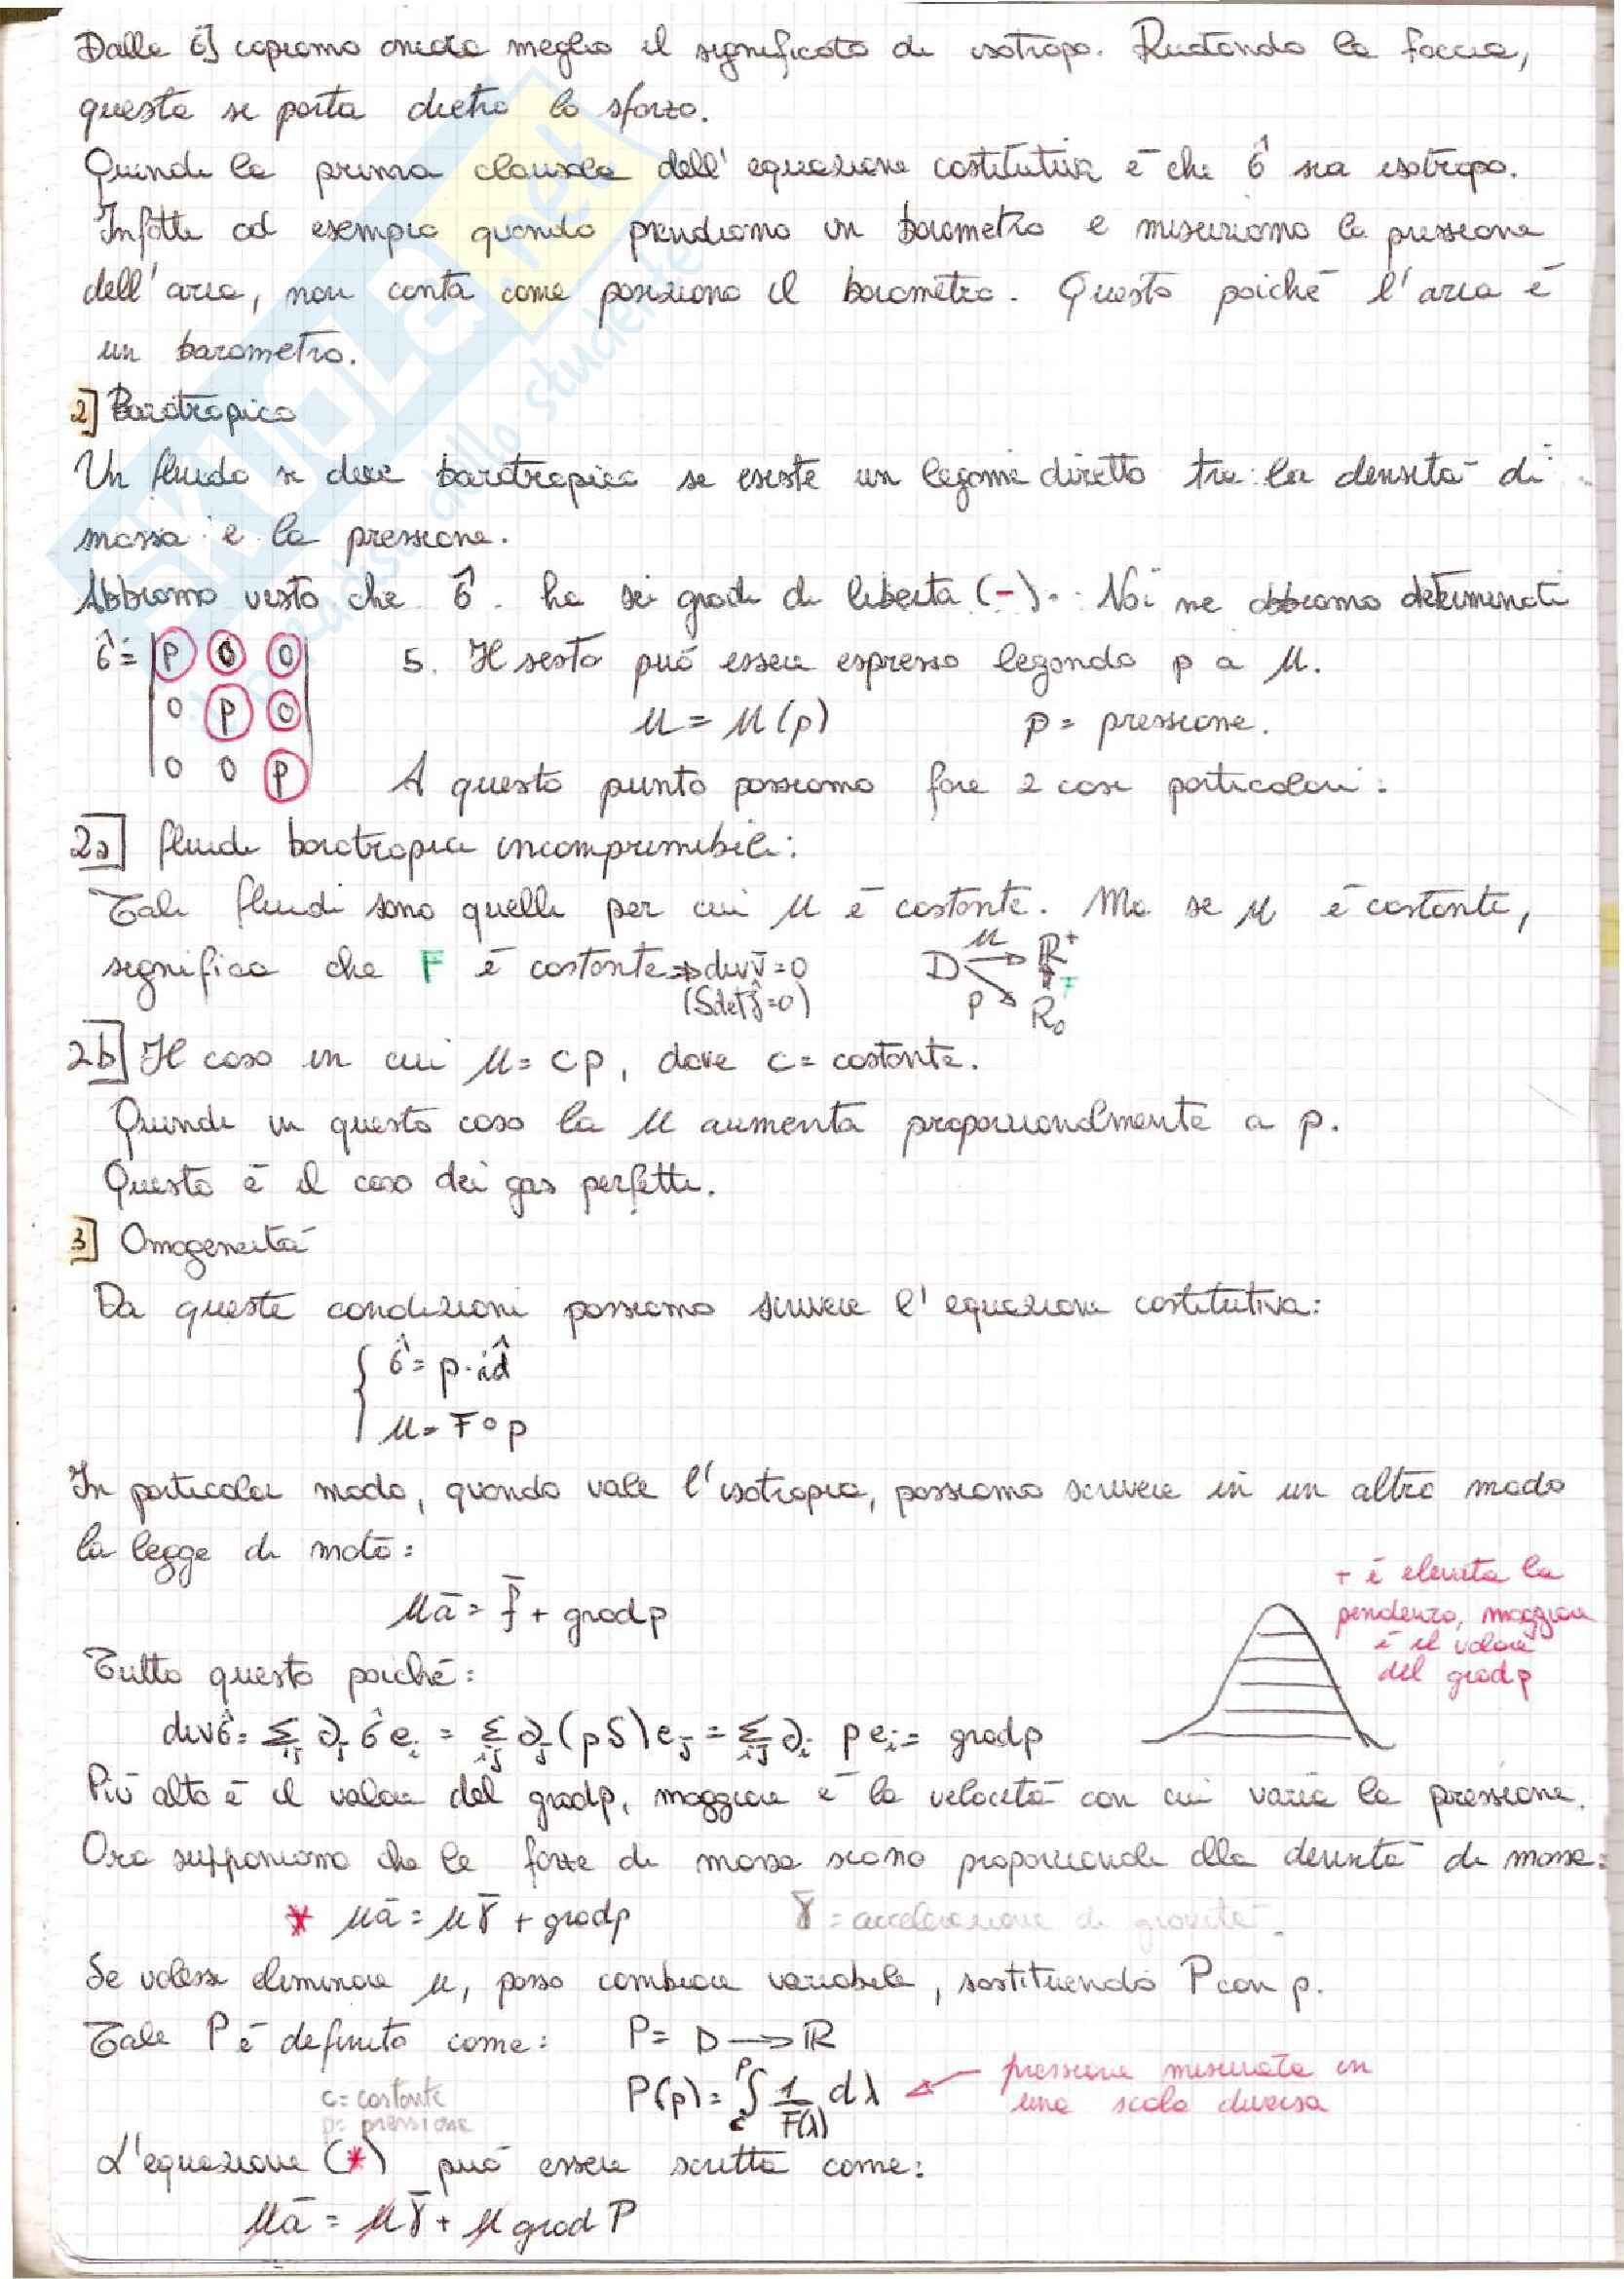 Dalla σ̂] capiamo anche meglio il significato di isotropo. Ruotando la faccia,
questa si porta dietro lo sforzo.
Quindi la prima clausola dell'equazione costitutiva è che σ̂ sia isotropo.
Infatti ad esempio quando prendiamo un barometro e misuriamo la pressione
dell'aria, non conta come posiziono il barometro. Questo poiché l'aria è
un barometro.
2] Barotropico
Un fluido si dice barotropico se esiste un legame diretto tra la densità di
massa e la pressione.
Abbiamo visto che σ̂ ha sei gradi di libertà (-). Noi ne abbiamo determinati
σ̂ = | p 0 0 |
0 p 0
0 0 p
5. Il sesto può essere espresso legando p a μ.
μ = μ(p) p = pressione.
A questo punto possiamo fare 2 casi particolari:
2a] fluidi barotropici incomprimibili:
Tali fluidi sono quelli per cui μ è costante. Ma se μ è costante,
significa che F è costante ⇒ div v̄ = 0
(Sdet ĵ = 0)
D μ R⁺
p F
R₀
2b] Il caso in cui μ = cp, dove c = costante.
Quindi in questo caso la μ aumenta proporzionalmente a p.
Questo è il caso dei gas perfetti.
3] Omogeneità
Da queste condizioni possiamo scrivere l'equazione costitutiva:
{ σ̂ = p · id̂
μ = F ∘ p
In particolar modo, quando vale l'isotropia, possiamo scrivere in un altro modo
la legge di moto:
μā = f̄ + grad p
+ è elevata la
pendenza, maggiore
è il valore
del grad p
Tutto questo poiché:
div σ̂ = Σij ∂j σ̂ ei = Σij ∂j (p δ) ej = Σij ∂i p ei = grad p
Più alto è il valore del grad p, maggiore è la velocità con cui varia la pressione.
Ora supponiamo che le forze di massa siano proporzionali alla densità di massa:
* μā = μγ̄ + grad p γ̄ = accelerazione di gravità
Se volessi eliminare μ, posso cambiare variabile, sostituendo P con p.
Tale P è definito come: P = D ⟶ R
P(p) = ∫cp 1/F(λ) dλ ← pressione misurata in
una scala diversa
c = costante
p = pressione
L'equazione (*) può essere scritta come:
μā = μγ̄ + μ grad P